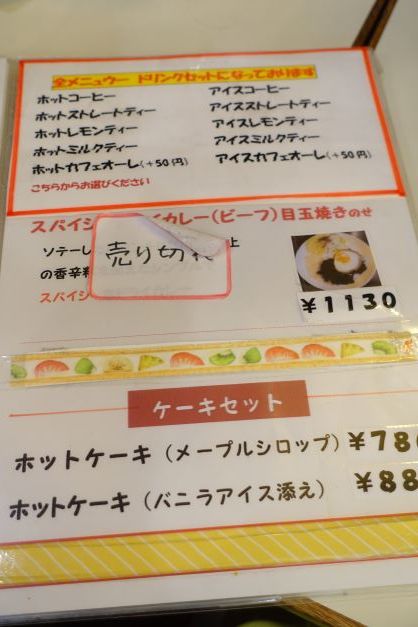 全メニュー ドリンクセットになっております
ホットコーヒー
ホットストレートティー
ホットレモンティー
ホットミルクティー
ホットカフェオーレ(+50円)
アイスコーヒー
アイスストレートティー
アイスレモンティー
アイスミルクティー
アイスカフェオーレ(+50円)
こちらからお選びください
スパイシ イカレー(ビーフ)目玉焼きのせ
ソテーし 上
の香辛料
スパイシ
売り切れ
¥1130
ケーキセット
ホットケーキ(メープルシロップ)¥780
ホットケーキ(バニラアイス添え) ¥88